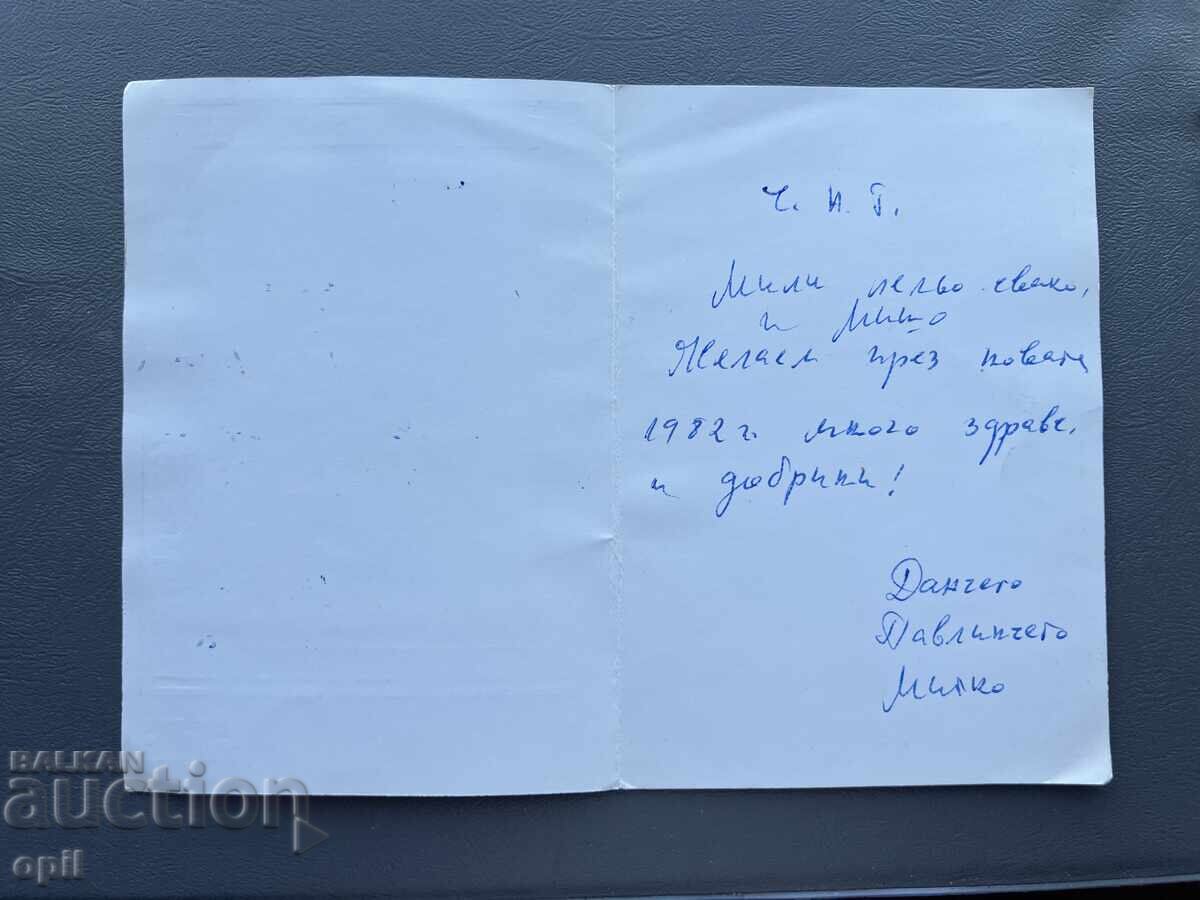 Ч. Н. Г.
Мили лельо свако,
и Мишо
Желаем през новата
1982 г. много здраве,
и добрини!
Данчето
Павлинчето
Митко
BALKAN
auction
opil